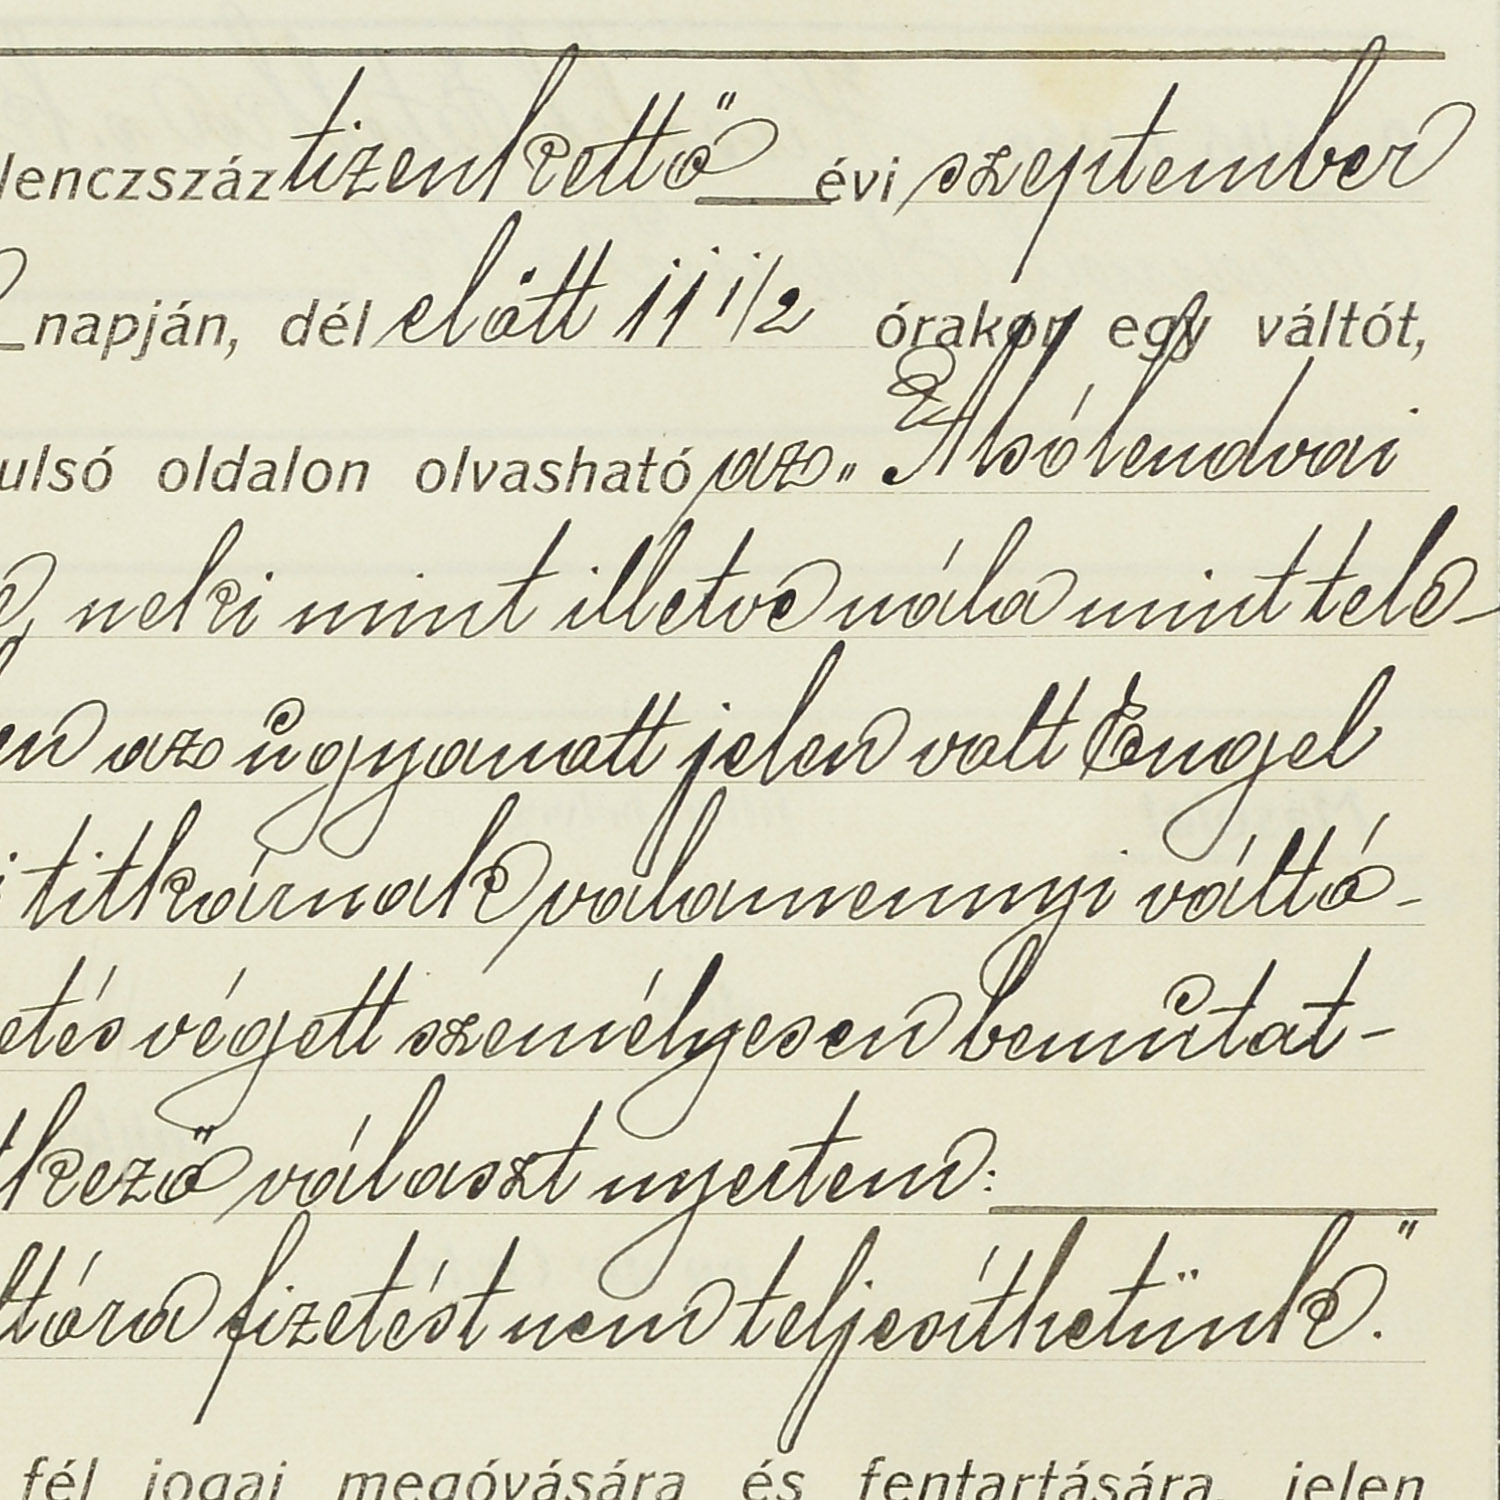 lenczszáz tizenkettő évi szeptember
napján, dél előtt 11 1/2 órakor egy váltót,
ulsó oldalon olvasható az „Alsólendvai
neki mint illetve nála mint tele-
en az ugyanott jelen volt Engel
i titkárnak valamennyi váltó-
etés végett személyesen bemutat-
tkező választ nyertem:
ltóra fizetést nem teljesíthetünk."
fél jogai megóvására és fentartására, jelen